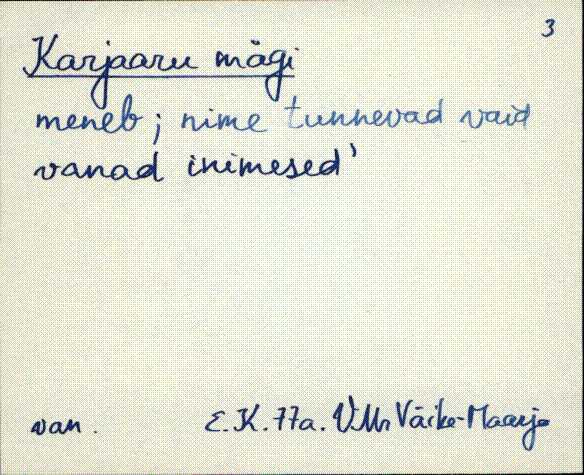 3
Karjaaru mägi
meneb; nime tunnevad vaid
vanad inimesed'
van. E.K. 77a. VMr Väike-Maarja